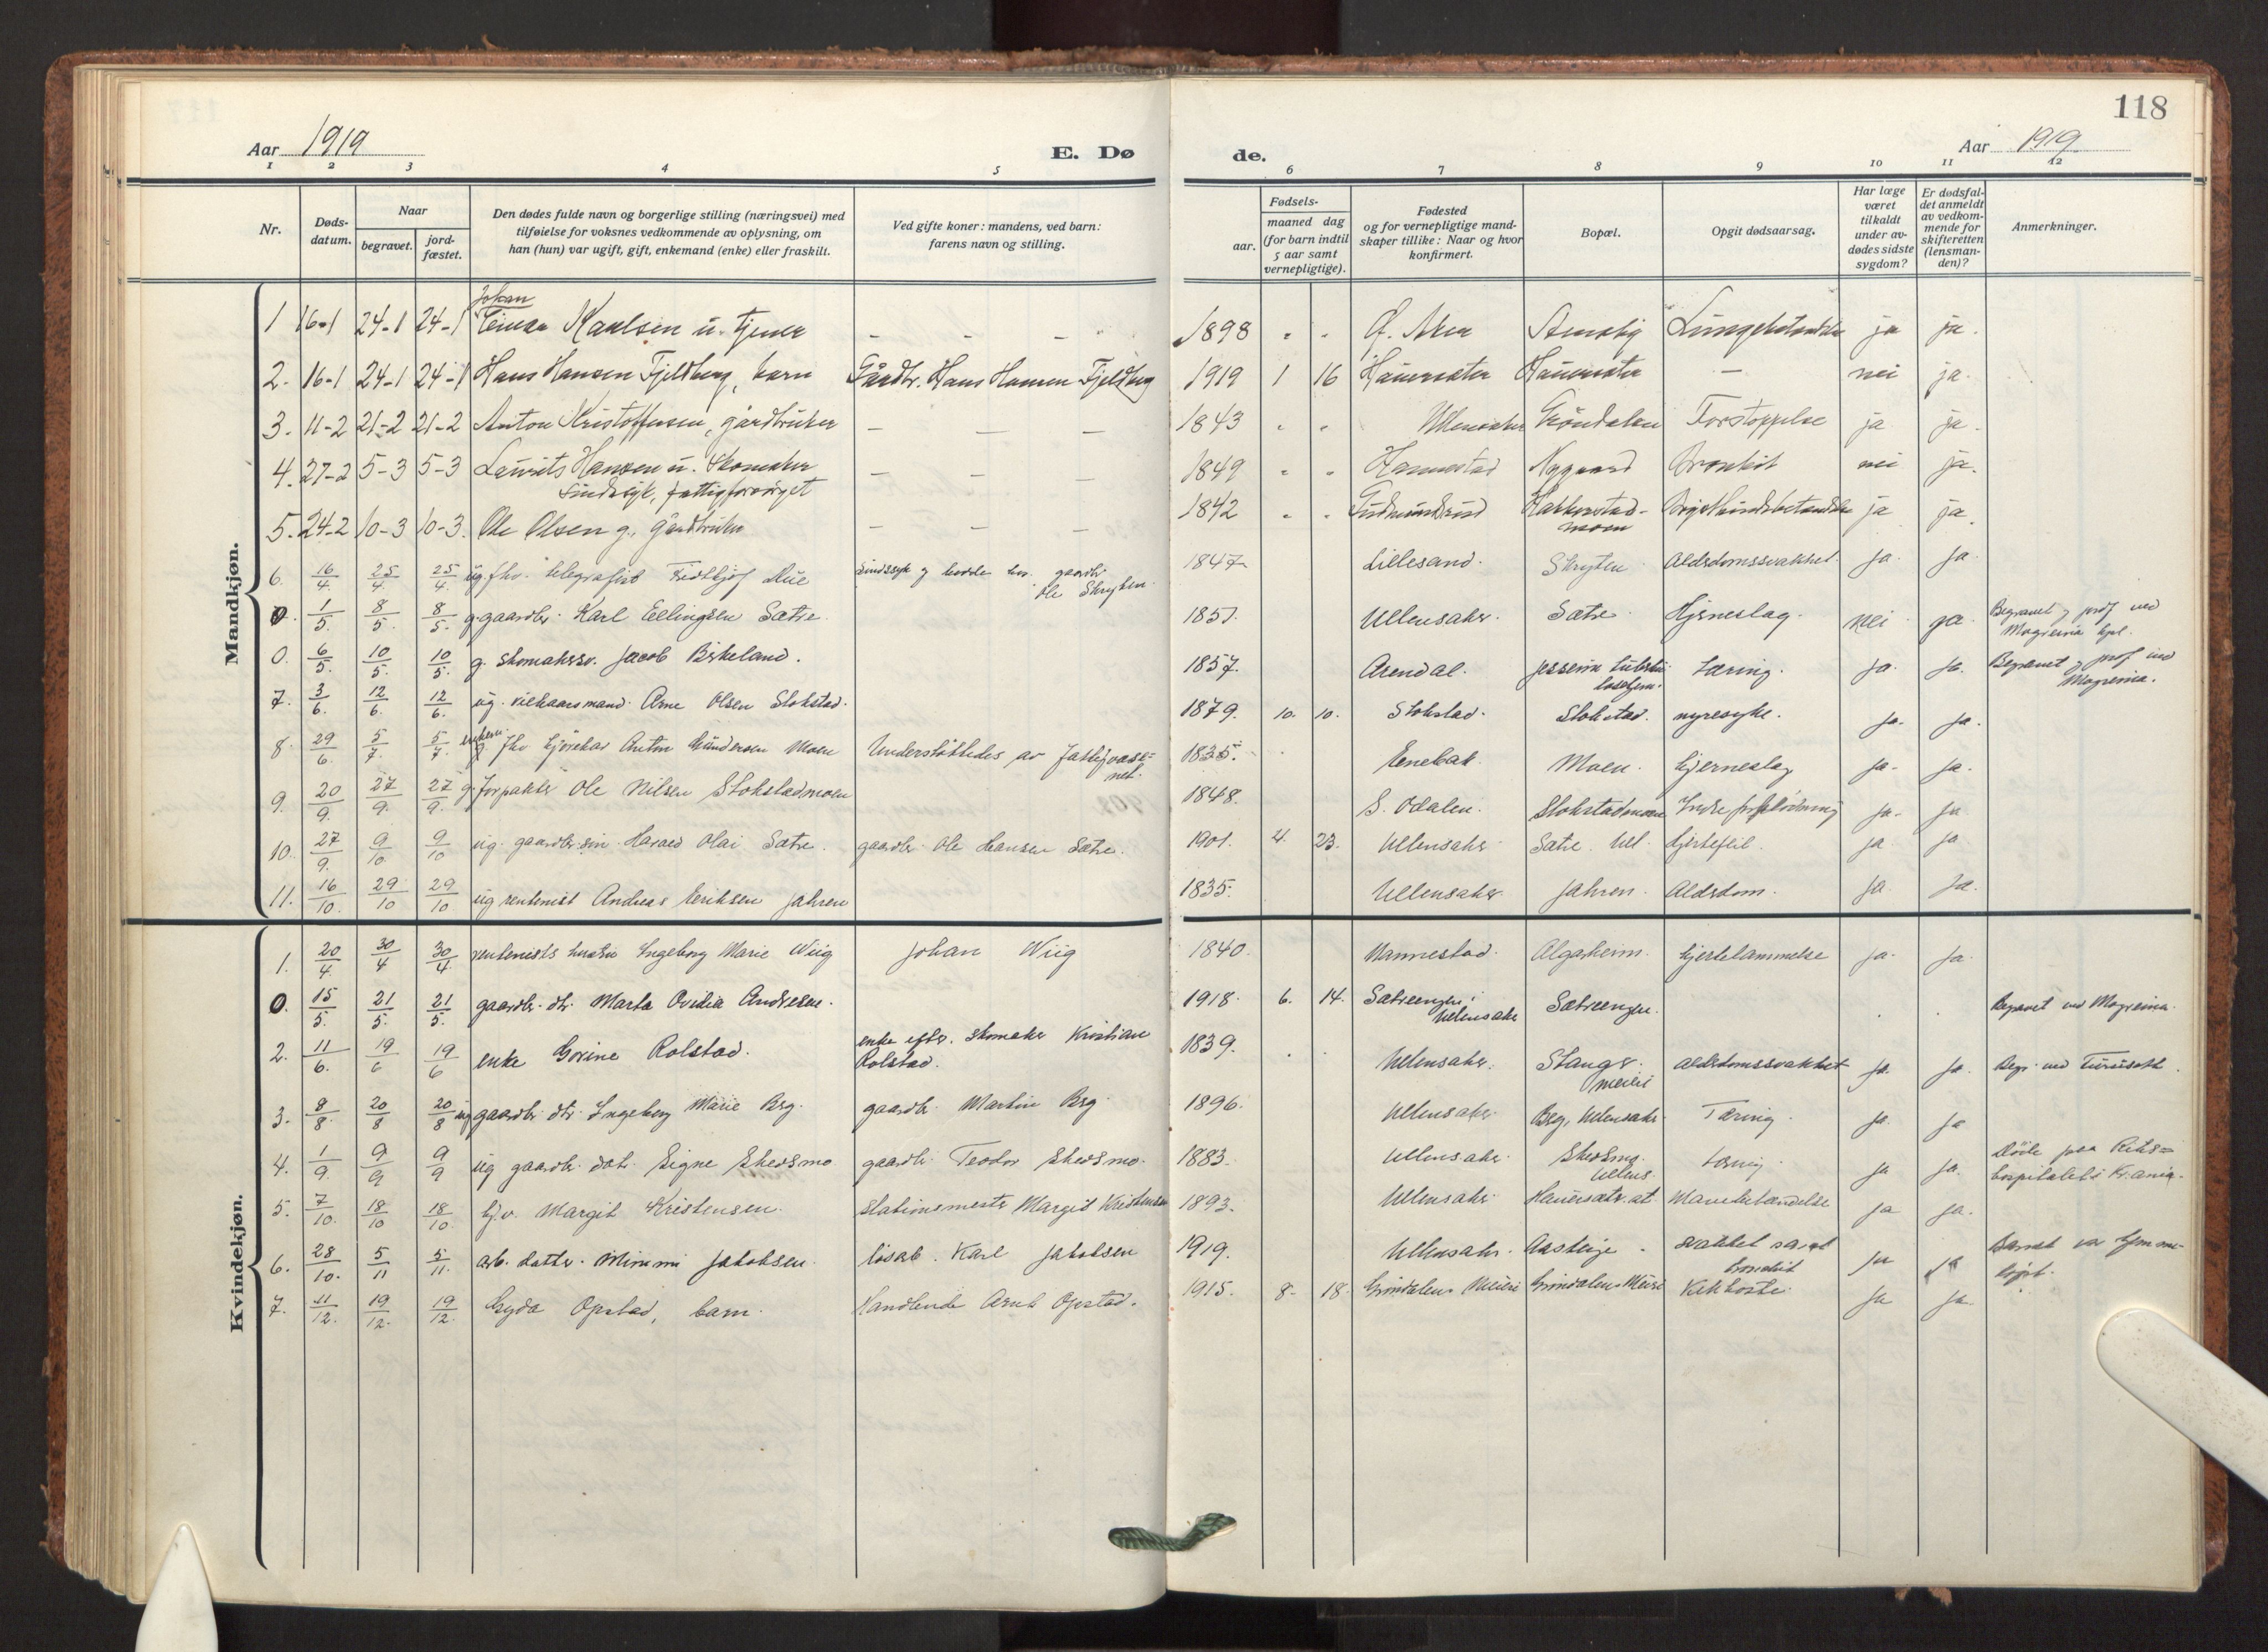 118
Aar 1919 E. Dø de. Aar 1919
1 2 3 4 5 6 7 8 9 10 11 12
Nr.
Døds-datum.
Naar
begravet.
jord-fæstet.
Den dødes fulde navn og borgerlige stilling (næringsvei) med
tilføielse for voksnes vedkommende av oplysning, om
han (hun) var ugift, gift, enkemand (enke) eller fraskilt.
Ved gifte koner: mandens, ved barn:
farens navn og stilling.
Fødsels-
aar.
maaned dag
(for barn indtil
5 aar samt
vernepligtige).
Fødested
og for vernepligtige mand-
skaper tillike: Naar og hvor
konfirmert.
Bopæl.
Opgit dødsaarsag.
Har læge
været
tilkaldt
under av-
dødes sidste
sygdom?
Er dødsfal-
det anmeldt
av vedkom-
mende for
skifteretten
(lensman-
den)?
Anmerkninger.
Mandkjøn.
Johan
1 16-1 24-1 24-1 Karlsen u. tjener - - - 1898 " " Ø. Aker Lungebetændelse ja ja.
2. 16-1 24-1 24-1 Hans Hansen Fjeldberg, barn Gårdbr. Hans Hansen Fjeldberg 1919 1 16 Hauersæter Hauersæter - nei ja.
3. 11-2 21-2 21-2 Anton Kristoffersen, gårdbruker - - - 1843 " " Ullensaker Gröndalen Forstoppelse ja ja.
4. 27-2 5-3 5-3 Laurits Hansen u. Skomaker - - - 1849 " " Nygaard Bronkit nei ja.
Sindssyk, fattigforsörget
5. 24-2 10-3 10-3. Ole Olsen g. Gårdbruker - - - 1842 " " Gudmundsrud Brysthindebetændelse ja ja.
moen
6. 16/4. 25/4. 25/4. ug. fhv. telegrafist Fridthjof Due Sindssyk g hos gaardbr. 1847 Lillesand. Skryten Alderdomssvakhet. ja. ja
Ole Skryten.
0. 1/5. 8/5. 8/5. g. gaardbr. Karl Ellingsen Sætre. 1851. Ullensaker. Sætre. Hjerneslag. nei ja. Begravet g prof ved
Mogreina kpl.
0. 6/5. 10/5. 10/5. g. Skomakersv. Jacob Birkeland. 1857. Arendal. Jessheim tuberku- tæring. ja. ja. Begravet g prof ved
losehjem. Mogreina.
7. 3/6. 12/6. 12/6. ug. vilkaarsmand Arne Olsen Stokstad. 1879. 10. 10. Stokstad. Stokstad. nyresyke. ja. ja.
8. 29/6. 5/7. 5/7. enkem. fhv kjörekar Anton Gundersen Moen Understöttedes av fattigvæse- 1835. Enebak Moen. hjerneslag ja. ja.
net.
9. 20/9. 27/9. 27/9. g. forpakter Ole Nilsen Stokstadmoen 1848. S. Odalen. Stokstadmoen Indre forblödning ja. ja
10. 27/9. 9/10 9/10 ug. gaardbr. sön Harald Olai Sætre. gaardbr. Ole Hansen Sætre. 1901. 4. 23. Ullensaker Sætre. Ull. hjertefeil. ja ja
11. 16/10. 29/10 29/10 ug rentenist Andreas Eriksen Jahren 1835. Ullensaker. Jahren. Alderdom. ja. ja.
Kvindekjøn.
1. 20/4. 30/4 30/4. rentenists hustru Ingeborg Marie Wiig Johan Wiig 1840. Nannestad. Algarheim. hjertelammelse ja. ja.
0. 15/5. 21/5. 21/5. gaardbr. dtr. Marta Ovidia Andresen. 1918. 6. 14. Sætreengen i Sætreengen. Begravet ved Mogreina.
Ullensaker
2. 11/6. 19/6 19/6 enke Gorine Rolstad. enke efter skomaker Kristian 1839. Ullensaker. Stanger alderdomssvakhet ja. ja. Begr. ved Furuseth.
Rolstad. meieri
3. 8/8. 20/8 20/8 ug gaardbr. dtr. Ingeborg Marie Berg. gaardbr. Martin Berg 1896. Ullensaker Berg, Ullensaker. Tæring. ja. ja
4. 1/9. 9/9 9/9 ug gaardbr. datr. Signe Skedsmo gaardbr. Teodor Skedsmo. 1883. Ullensaker. Skedsmo. tæring. ja ja. Döde paa Riks-
Ullens. hospitalet i Krania.
5. 7/10. 18/10 18/10. hj.v. Margit Kristensen. Stationsmester Margit Kristensen 1893. Ullensaker Hauersæter. st. Mavebetændelse ja ja.
6. 28/10. 5/11 5/11. arb. datter. Mimmi Jakobsen. lösarb. Karl Jakobsen 1919. Ullensaker. svakhet samt ja ja Barnet var hjemme-
bronchit döpt.
7. 11/12. 19/12. 19/12. Gyda Opstad, barn. Handlende Arnt Opstad. 1915. 8. 18. Gröndalens Meieri Gröndalens Meieri Kikhoste. ja ja.